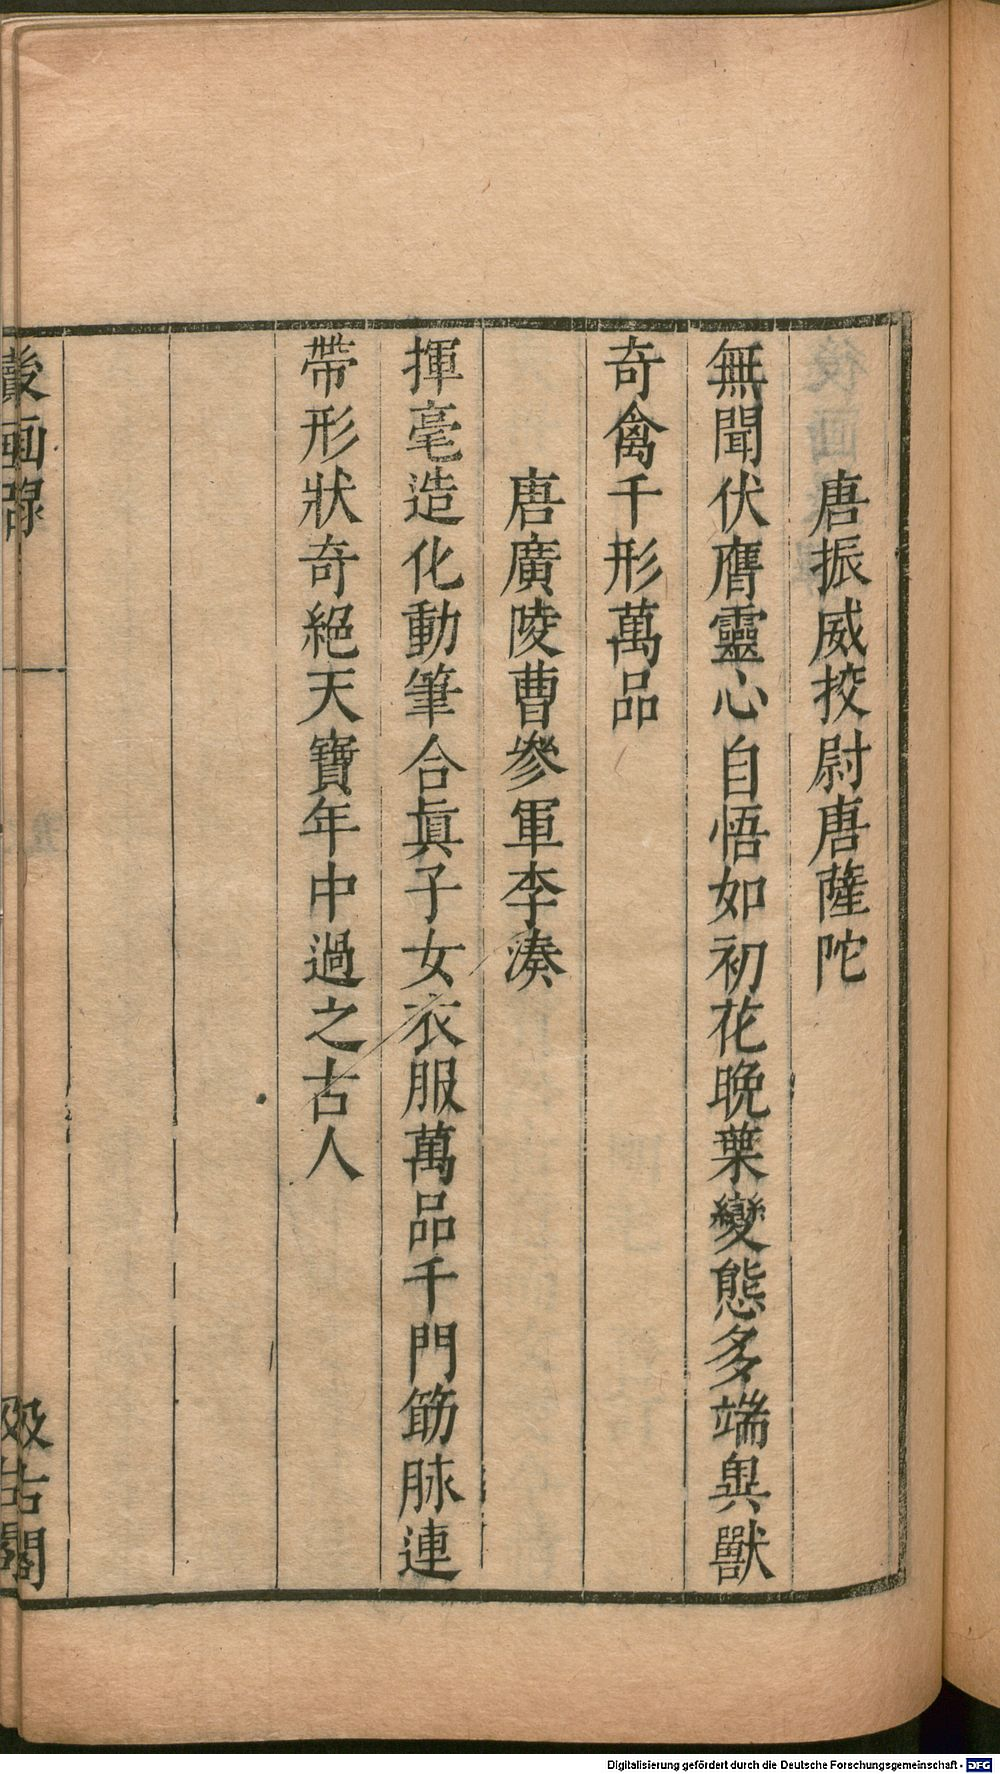 唐振威挍尉唐薩陀
無聞伏膺靈心自悟如初花晚葉變態多端異獸
奇禽千形萬品
唐廣陵曹參軍李湊
揮毫造化動筆合眞子女衣服萬品千門筋脉連
帶形狀奇絕天寶年中過之古人
後画錄
汲古閣
Digitalisierung gefördert durch die Deutsche Forschungsgemeinschaft - DFG